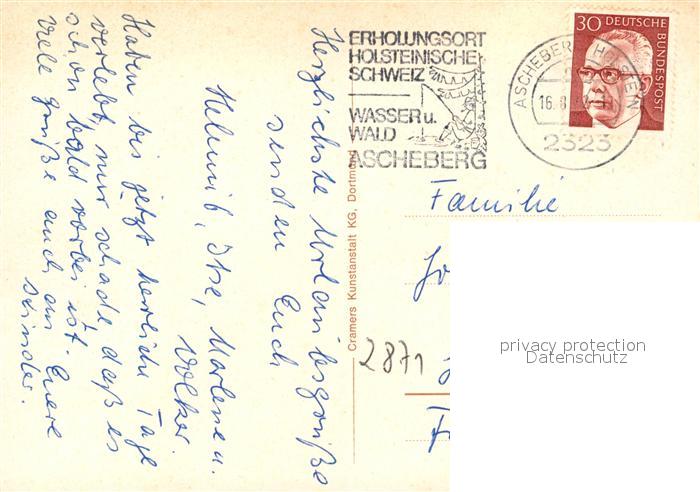 Herzlichste Urlaubsgrüße
senden Euch
Helmut, Ilse, Marlene u.
Volker.
Haben bis jetzt herrliche Tage
verlebt, nur schade daß es
schon bald vorbei ist.
Viele Grüße auch an Euere
Kinder.
ERHOLUNGSORT
HOLSTEINISCHE
SCHWEIZ
WASSER u.
WALD
ASCHEBERG
ASCHEBERG HOLSTEIN
16.8.
2323
30 DEUTSCHE
BUNDESPOST
Cramers Kunstanstalt KG, Dortmund
Familie
2871
privacy protection
Datenschutz